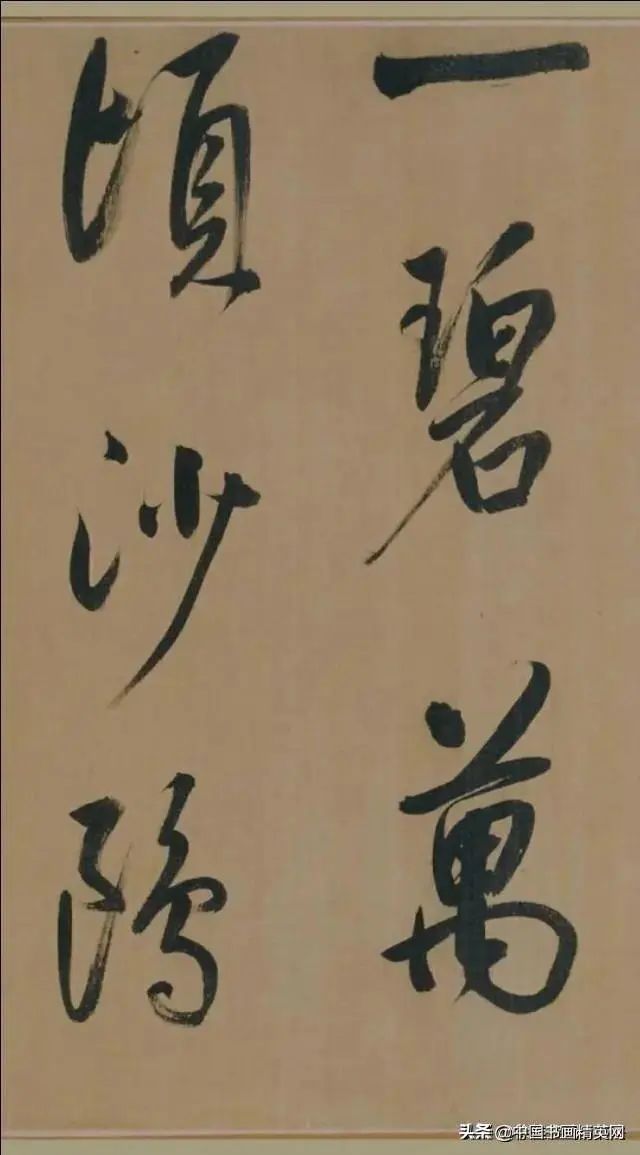 一碧萬
頃沙鷗
头条 @中国书画精英网